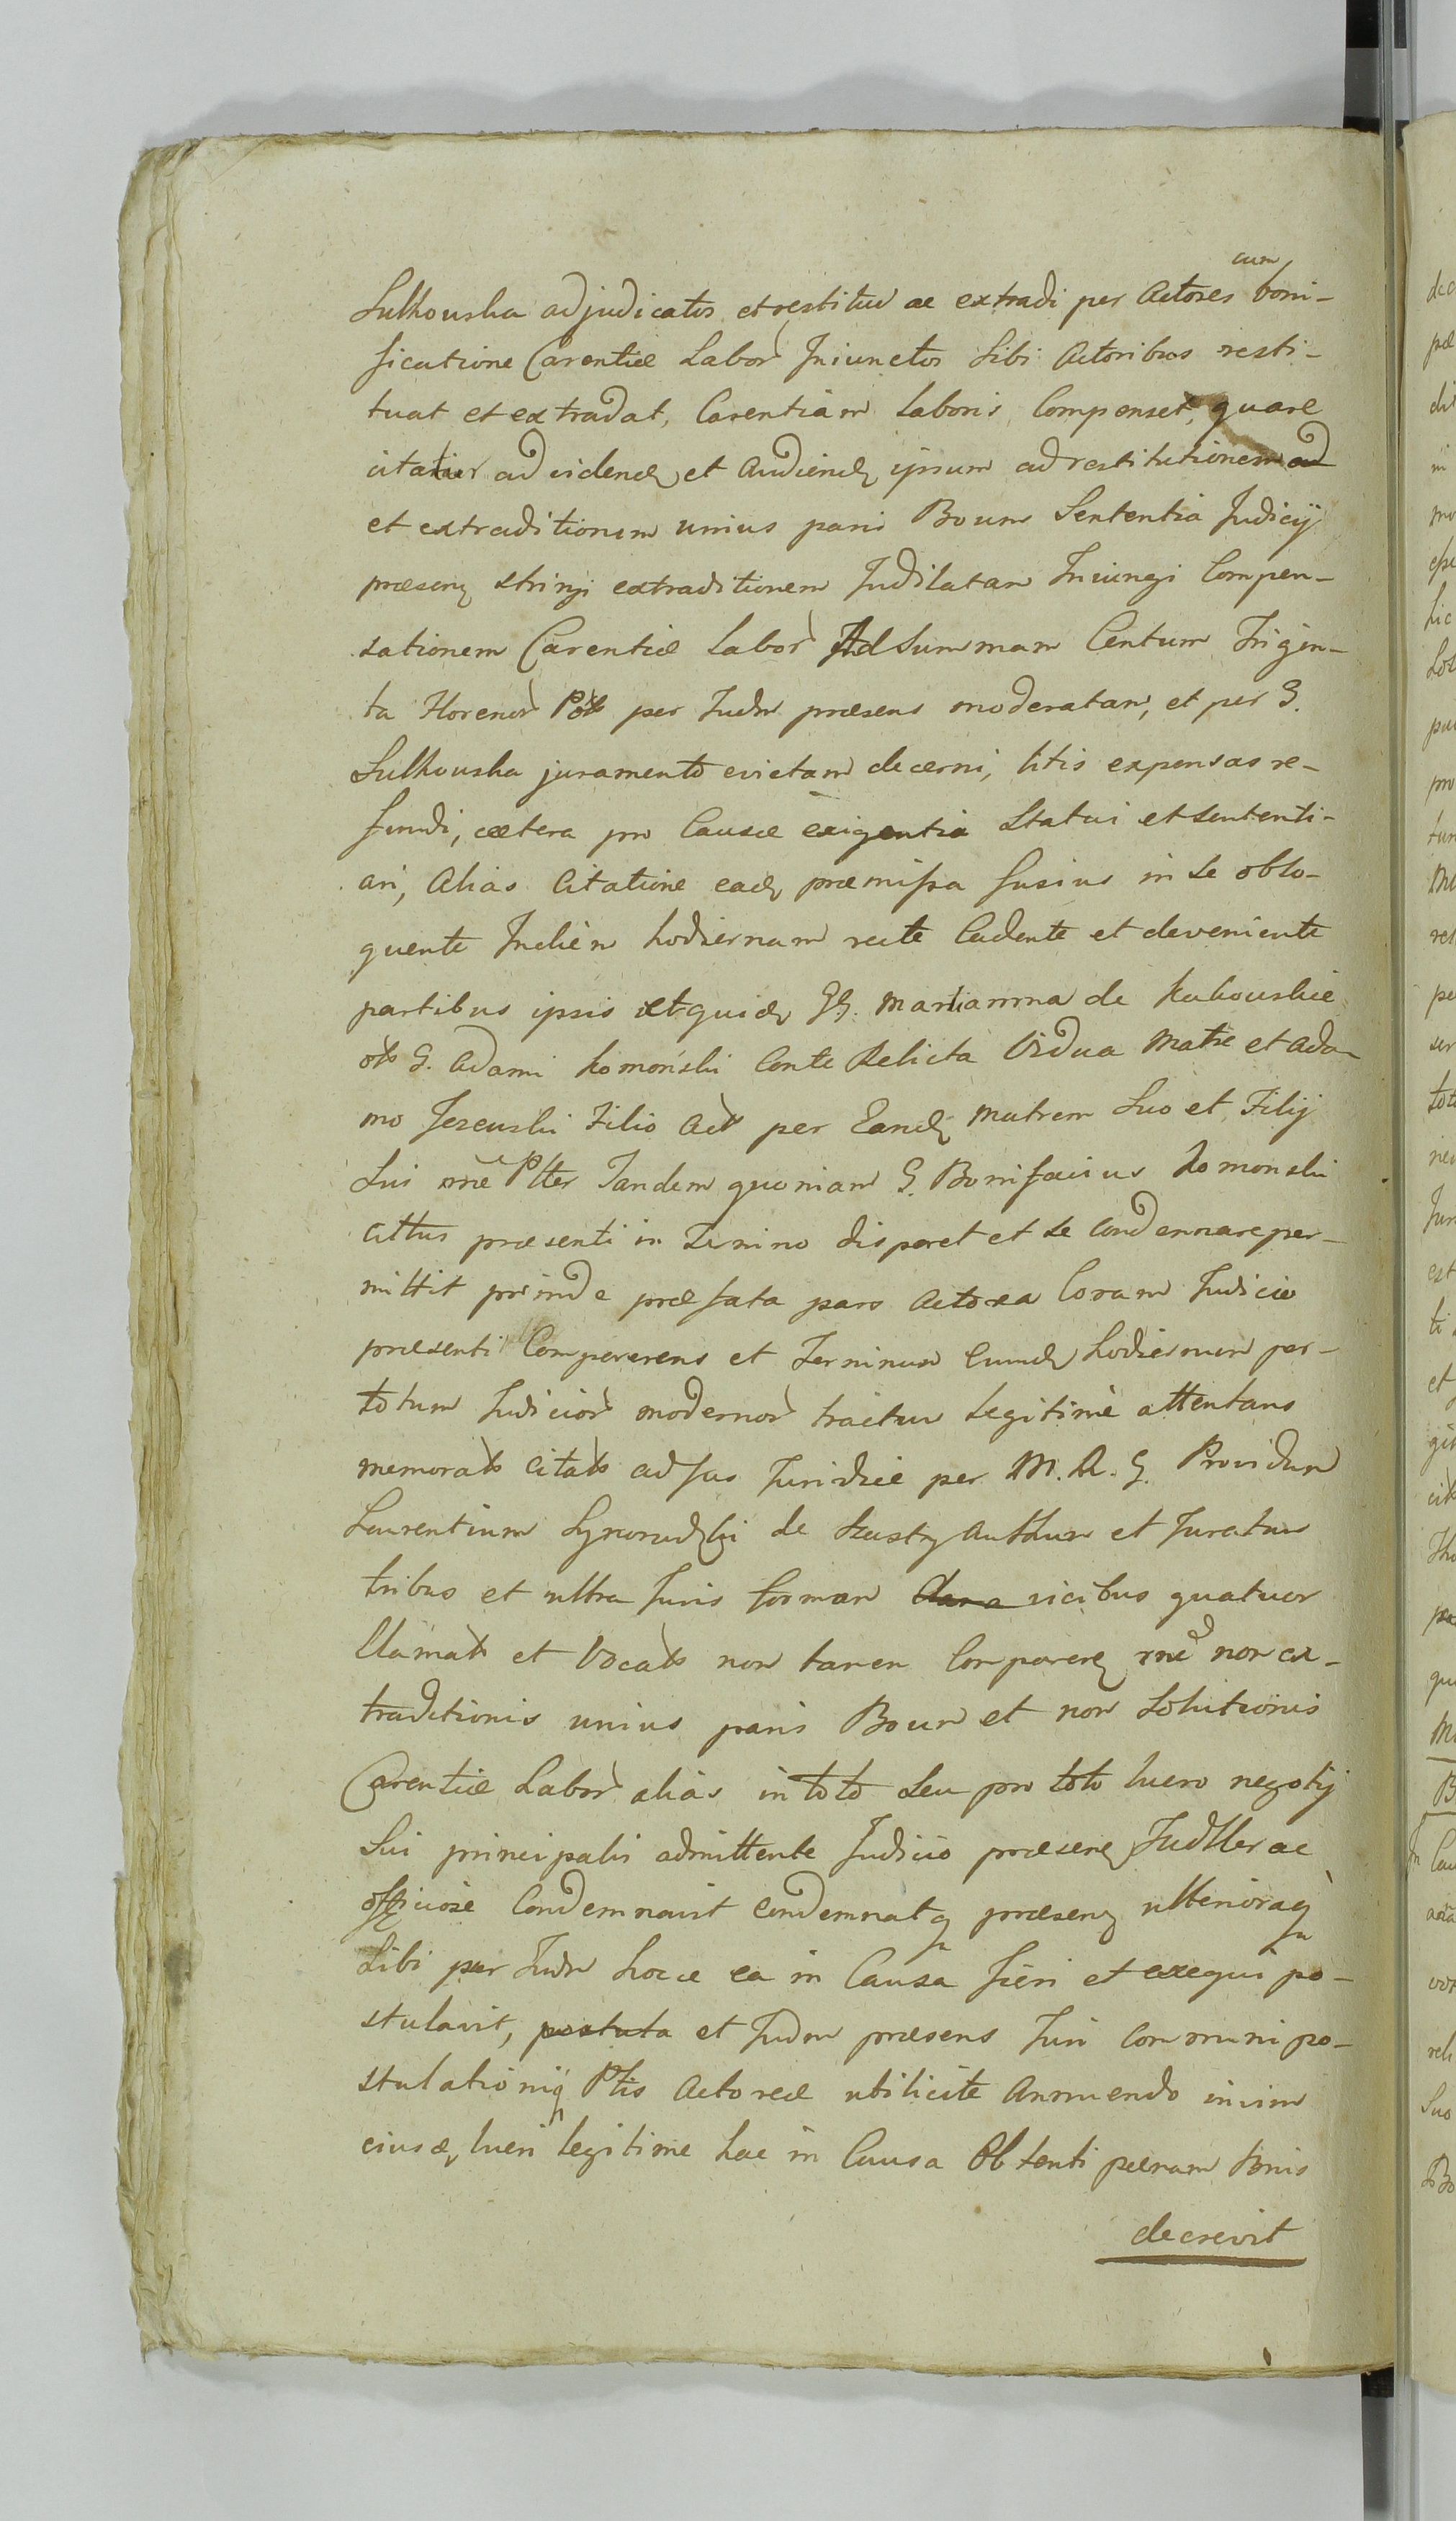 cum
Sulkouska adjudicatos et restitui ac extradi per Actores boni-
ficatione Carentiæ Labor Iniunctos Sibi Actoribus resti-
tuat et extradat, Carentiam Laboris Compenset, quare
citatur ad videndz et Audiendz ipsum ad restitutionem ad
et extraditionem unius paris Boum Sententia Judicij
præsenz stringi extraditionem Indilatam Iniungi Compen-
sationem Carentiæ Labor Ad Summam Centum Trigin-
ta Florenor Pol per Judm præsens moderatam, et per G.
Sulkouska juramento evictam decerni, litis expensas re-
fundi, cætera pro Causæ exigentia Statui et sententi-
ari, Alias Citatione eadz præmissa fusius in se oblo-
quente In diem hodiernam recte Cadente et deveniente
partibus ipsis et quidz GG. Marianna de Kukouskie
G. Adami Komonski Conte Relicta Vidua Matre et Ada-
mo Jezeuski Filio Act per Eandz Matrem Suo et Filij
Sui nne Plter Tandem quoniam G. Bonifacius Komonski
Cittus præsenti in Termino disparet et se Condemnare per-
mittit proinde præfata pars Actorea Coram Judicio
præsenti Comperens et Terminum Eumdz hodiernum per
totum Judicior modernor tractum legitime attentans
memorat Citat ad Jus Juridice per M. R. G. Providum
Laurentium de Authum et Juratum
tribus et ultra Juris formam vicibus quatuor
Clamat et Vocat non tamen Comparenz rne non ex-
traditionis unius paris Boum et non Solutionis
Carentiæ Labor alias in toto seu pro toto lucro negotij
Sui principalis admittente Judicio præsenz Judller ac
officiose Condemnavit Condemnatq præsenz ulterioraq
Sibi per Judm hocce ea in Causa fieri et exequi po-
stulavit, postula et Judm præsens Juri Communi po-
stulationiq Ptis Actoreæ uti licite Annuendo in vim
eiusdz lucri legitime hac in Causa Obtenti pænam
decrevit